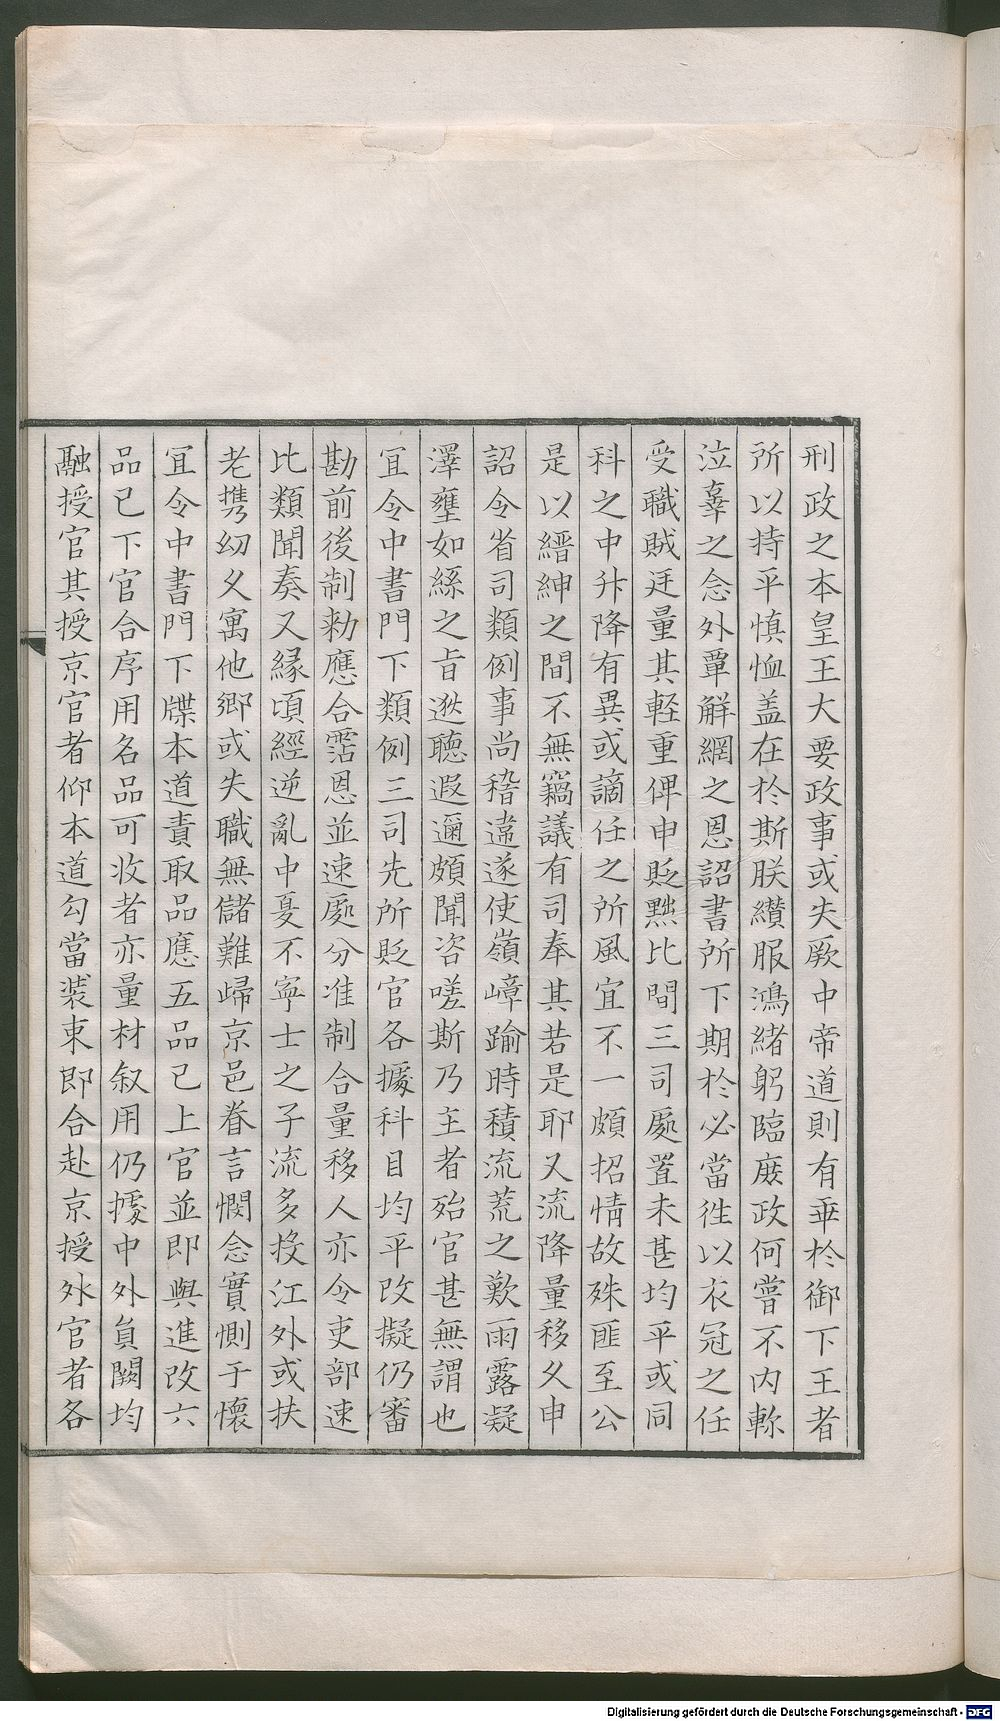 刑政之本皇王大要政事或失厥中帝道則有乖於御下王者
所以持平慎恤盖在於斯朕纘服鴻緒躬臨庶政何嘗不内軫
泣辜之念外覃解網之恩詔書所下期於必當徃以衣冠之任
受職賊廷量其軽重俾申貶黜比間三司處置未甚均平或同
科之中升降有異或謫任之所風宜不一頗招情故殊匪至公
是以縉紳之間不無竊議有司奉其若是耶又流降量移乆申
詔令省司類例事尚稽違遂使嶺嶂踰時積流荒之歎雨露凝
澤壅如絲之旨逖聽遐邇頗聞咨嗟斯乃主者殆官甚無謂也
冝令中書門下類例三司先所貶官各據科目均平改擬仍審
勘前後制勑應合霑恩並速處分准制合量移人亦令吏部速
比類聞奏又縁頃經逆亂中憂不寧士之子流多投江外或扶
老携㓜乆寓他鄉或失職無儲難歸京邑眷言憫念實惻于懷
冝令中書門下牒本道責取品應五品已上官並即與進改六
品已下官合序用名品可收者亦量材叙用仍據中外負闕均
融授官其授京官者仰本道勾當装束即合赴京授外官者各
Digitalisierung gefördert durch die Deutsche Forschungsgemeinschaft - DFG